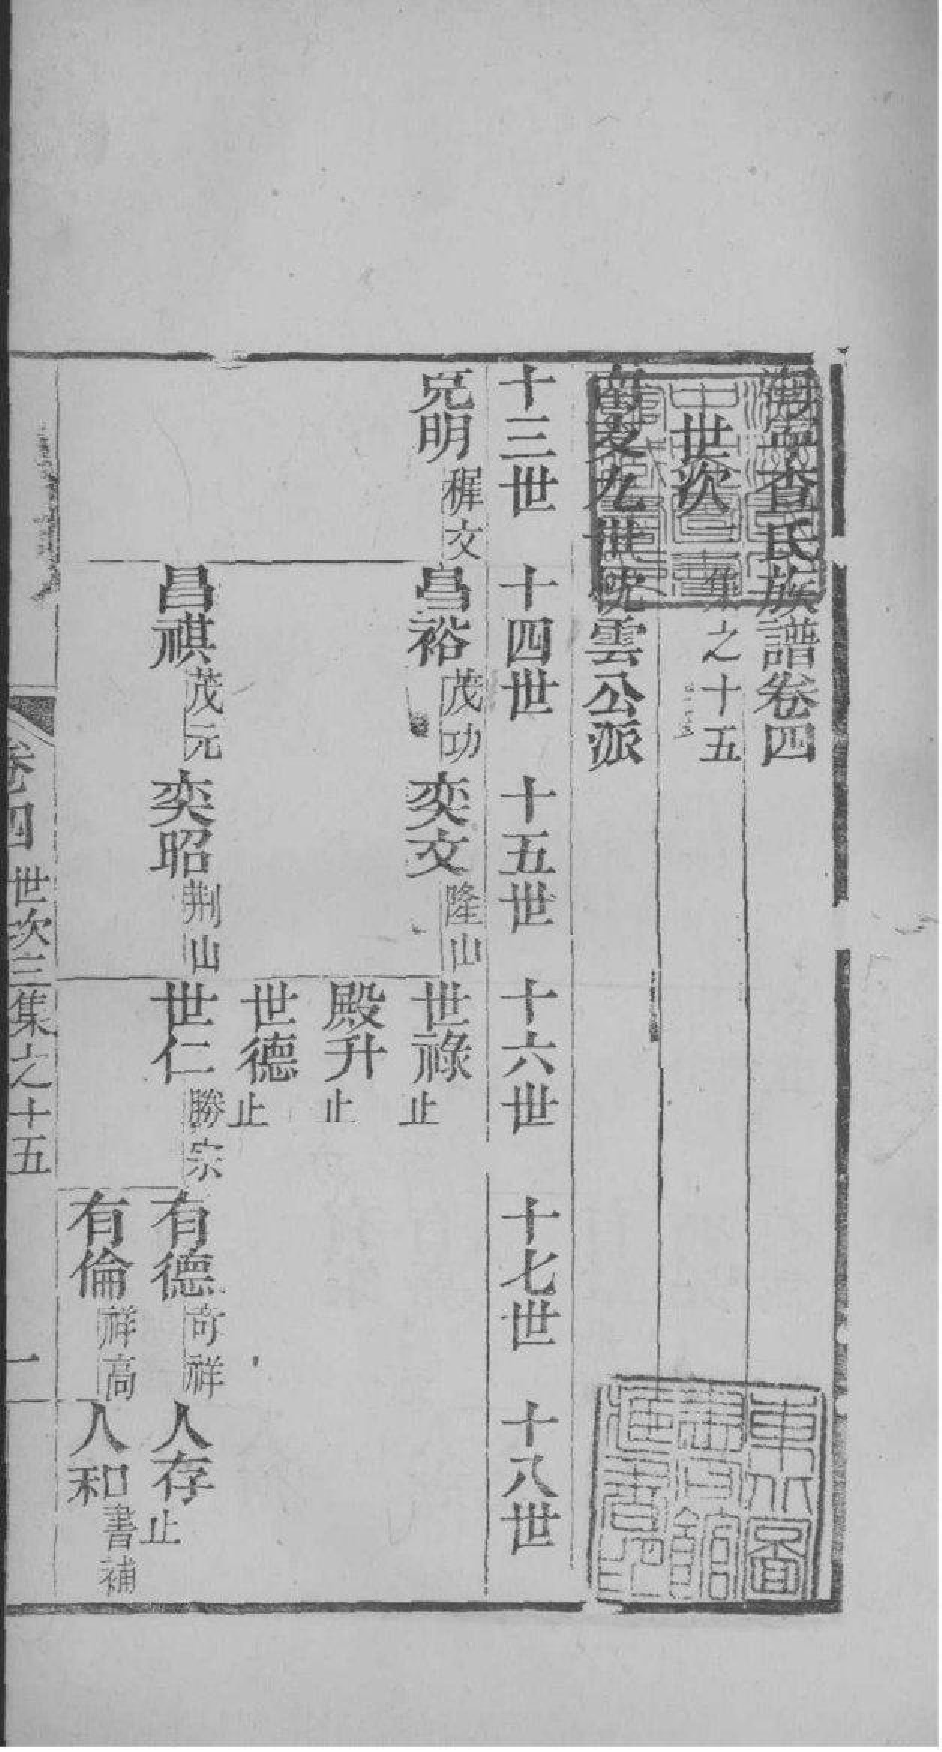 海寧查氏族譜卷四
世次三集之十五
南支九世晥雲公派
十三世 十四世 十五世 十六世 十七世 十八世
克明 樨文 昌裕 茂功 奕文 隆山 世祿 止
殿升 止
世德 止
昌祺 茂元 奕昭 荆山 世仁 勝宗 有德 奇祥 人存 止
有倫 祥高 人和 書補
卷四 世次三集之十五 一